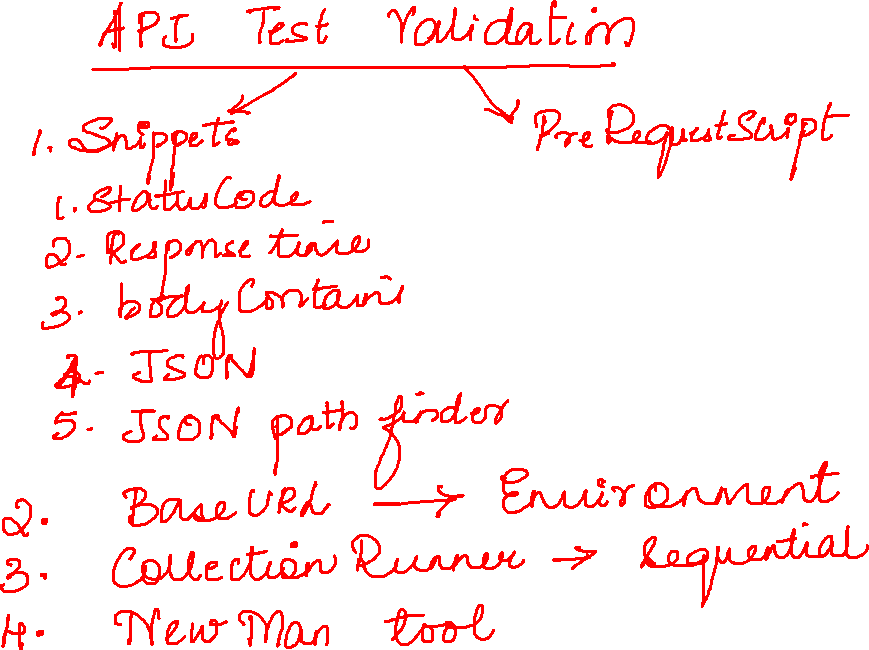 API Test Validation
1. Snippets
PreRequestScript
1. StatusCode
2- Response time
3. bodyContains
4- JSON
5- JSON path finder
2. BaseURL → Environment
3. Collection Runner → Sequential
4. NewMan tool